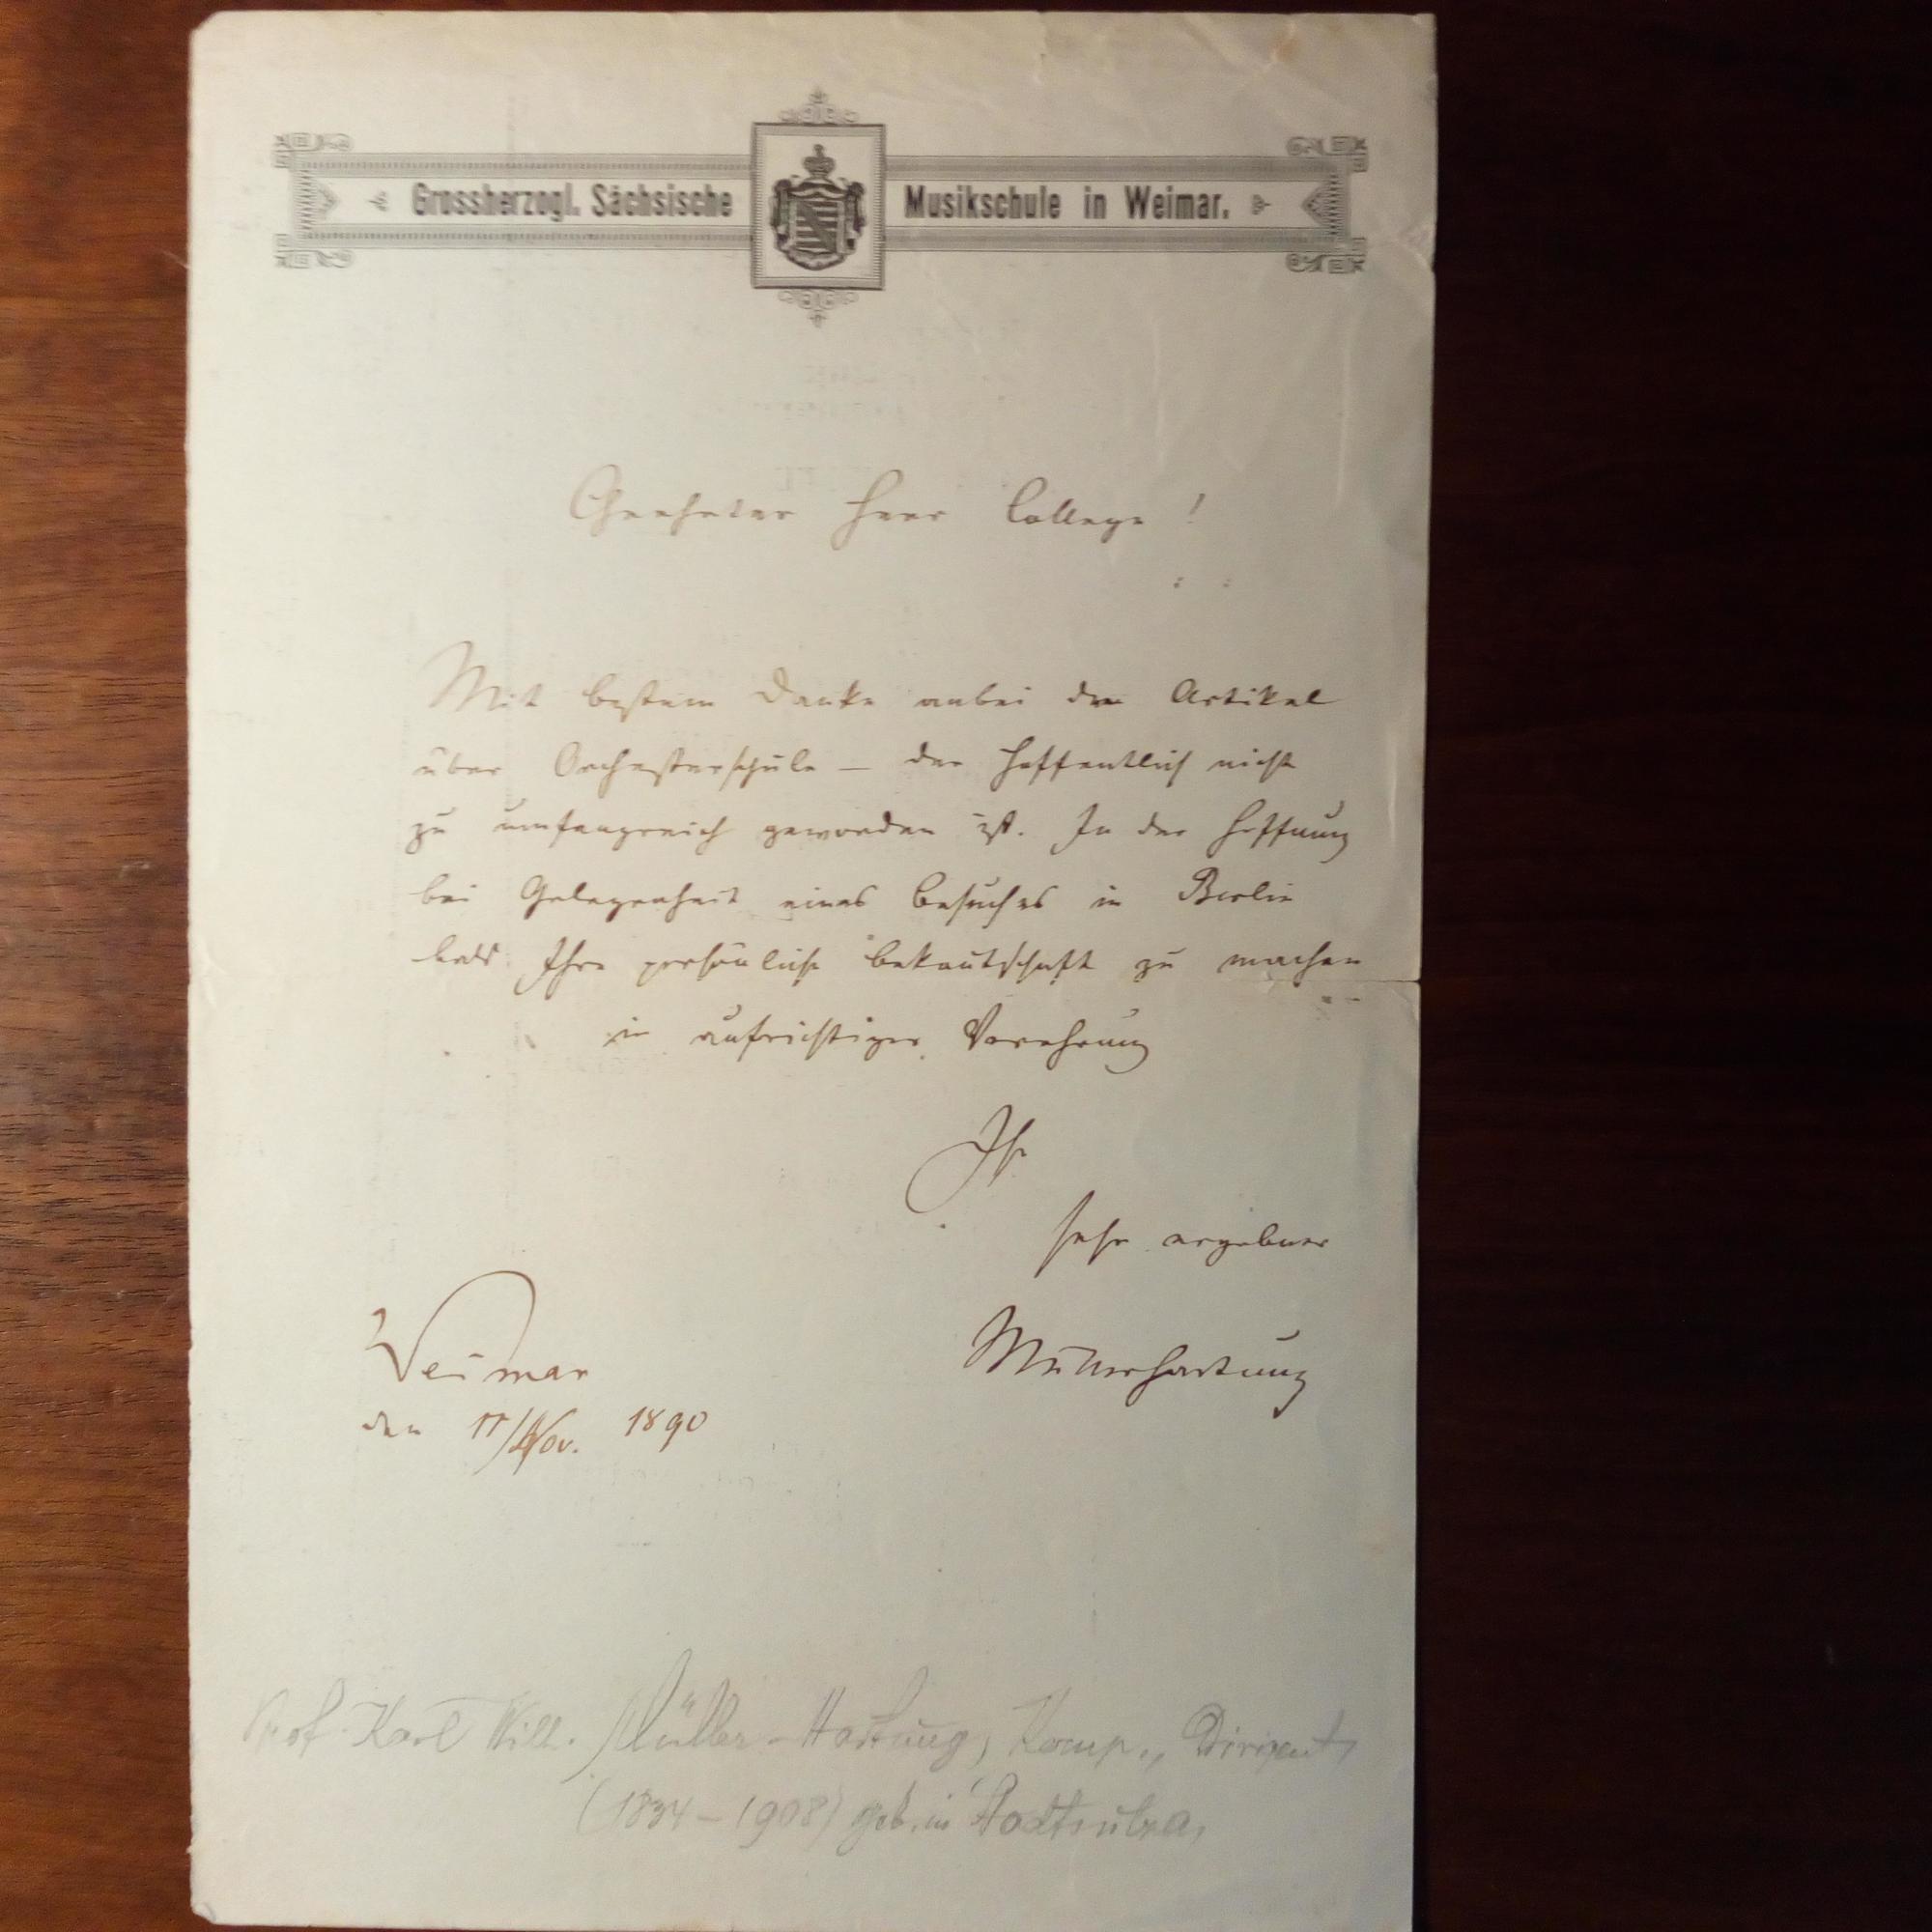 Grossherzogl. Sächsische Musikschule in Weimar.
Geehrter Herr College!
Mit bestem Danke anbei den Artikel
über Orchesterschule – der hoffentlich nicht
zu umfangreich geworden ist. In der Hoffnung
bei Gelegenheit eines Besuches in Berlin
bald Ihre persönliche Bekantschaft zu machen
in aufrichtiger Verehrung
Ihr
sehr ergebner
Müllerhartung
Weimar
den 11/Nov. 1890
Prof. Karl Wilh. Müller-Hartung, Komp., Dirigent,
(1834–1908) geb. in Stadtsulza,